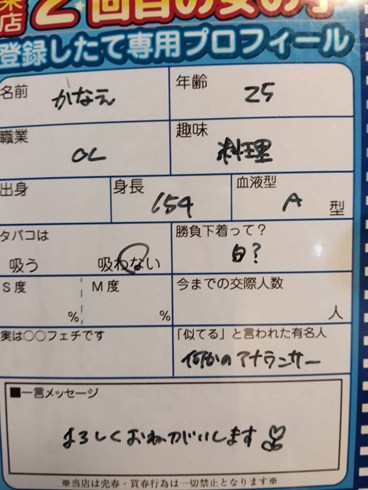 来店
2回目の女の子
登録したて専用プロフィール
名前 かなえ 年齢 25
職業 OL 趣味 料理
出身 身長 154 血液型 A 型
タバコは 勝負下着って?
吸う 吸わない 白?
S度 % M度 % 今までの交際人数 人
実は〇〇フェチです 「似てる」と言われた有名人
何かのアナウンサー
■一言メッセージ
よろしくおねがいします
※当店は売春・買春行為は一切禁止となります※